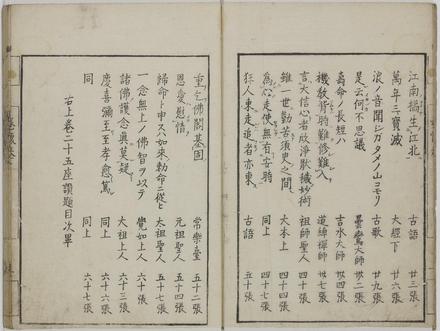 江南橘生江北 古語 廿三張
萬年三寳滅 大經下 廿六張
浪ノ音聞ジガタメノ山コモリ 古歌 廿九張
是云何不思議 曇鸞大師 卅二張
壽命ノ長短ハ 吉水大師 卅四張
機敎背時難修難入 道綽禪師 卅七張
言大信心者欣淨厭穢妙術 祖師聖人 卅九張
雖一世勤苦須臾之間 大本上 四十張
爲心走使無有安時 同上
狂人東走追者亦東 古語 五十張
重乞佛閣基固 常樂臺 五十二張
恩愛慰惜 元祖聖人 五十四張
歸命ト申スハ如来勅命ニ從ヒ 太祖聖人 五十七張
一念無上ノ佛智ヲ以テ 覺如上人 六十張
諸佛護念眞莫疑 大祖上人 六十三張
慶喜彌至至孝愈篤 同上 六十六張
同 同上 六十七張
右上卷二十五座讃題目次畢